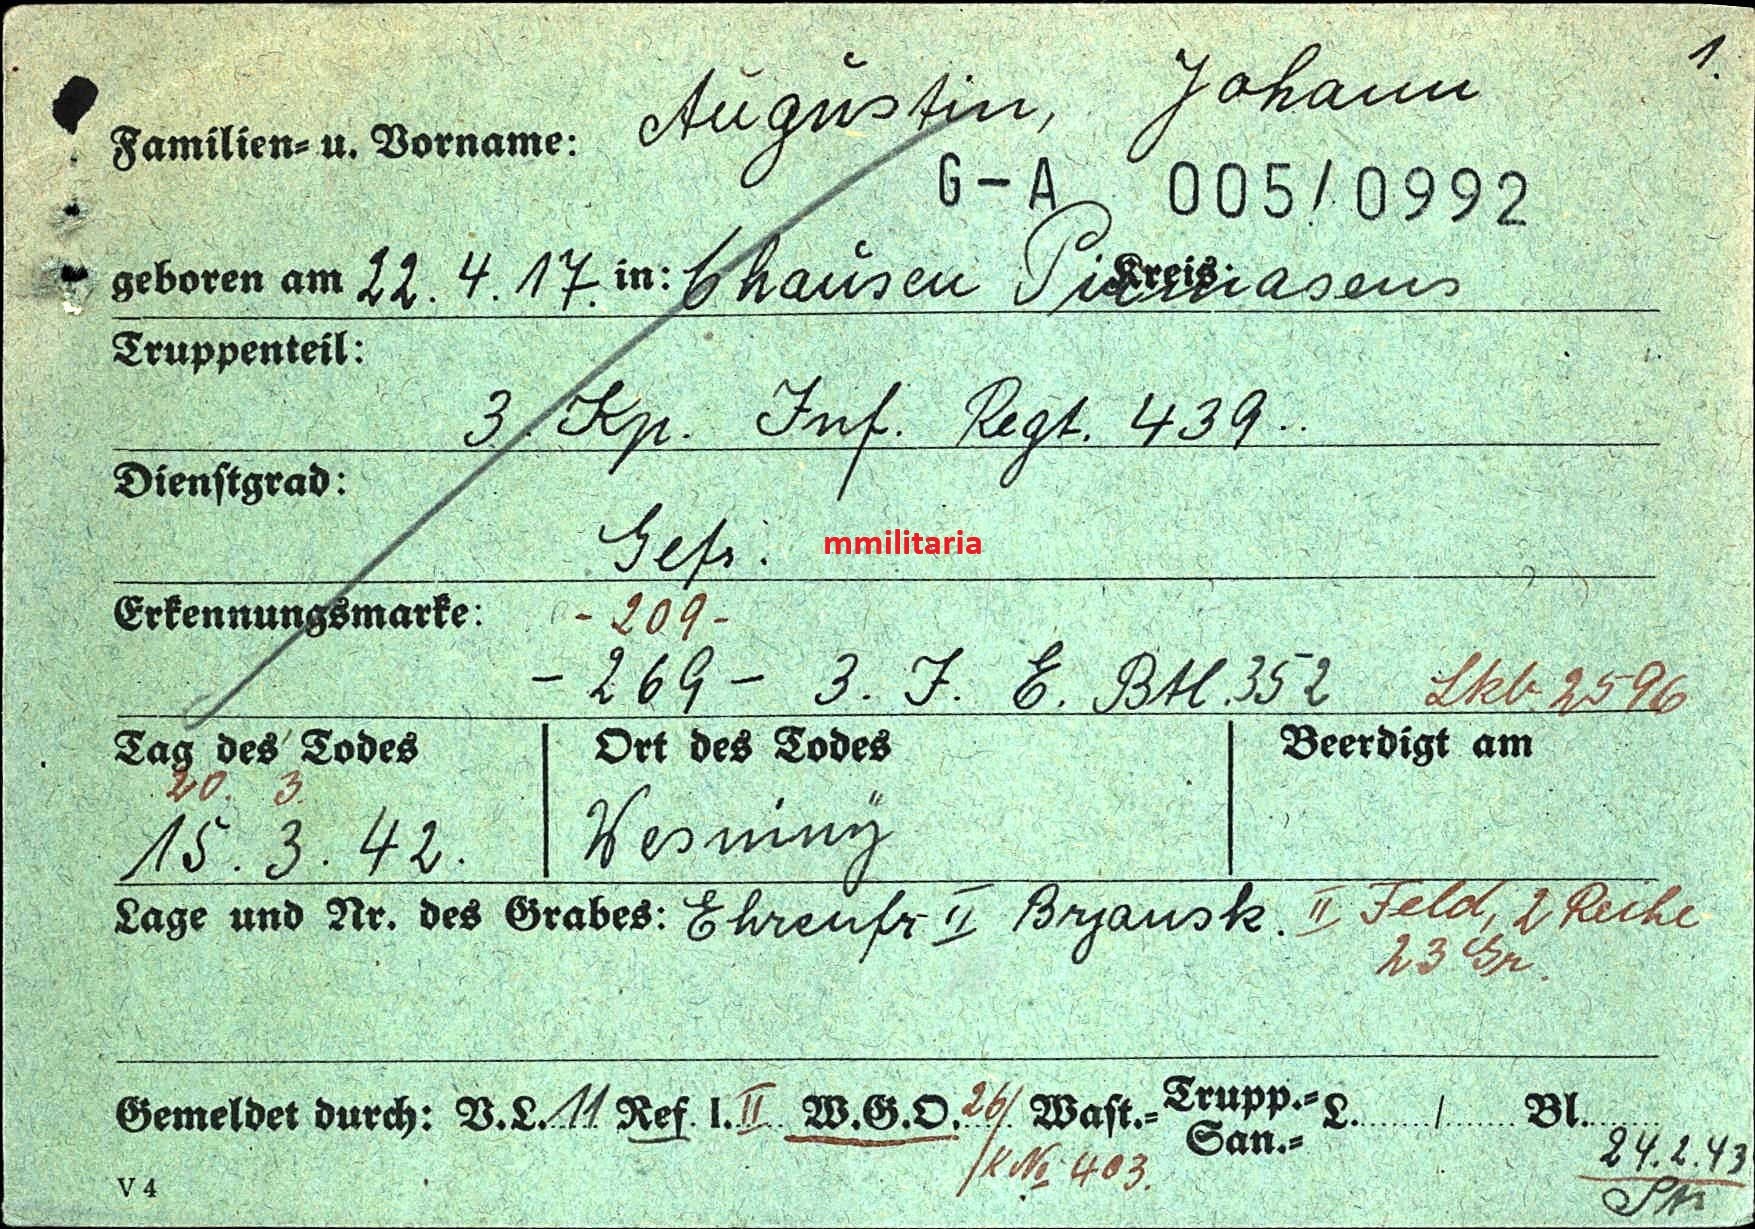 1.
Familien- u. Vorname: Augustin, Johann
G-A 005/0992
geboren am 22.4.17. in: Chausen Pirmasens Kreis:
Truppenteil:
3. Kp. Inf. Regt. 439.
Dienstgrad:
Gefr.
mmilitaria
Erkennungsmarke: - 209 -
- 269 - 3. J. E. Btl. 352 Lkb. 2596
Tag des Todes Ort des Todes Beerdigt am
20. 3.
15. 3. 42. Wesniny
Lage und Nr. des Grabes: Ehrenfr II Brjansk. II Feld, 2 Reihe
23 Gr.
Gemeldet durch: V.L. 11 Ref. I. II W.G.O. 26/ Wast.= Trupp.= L. / Bl.
San.=
K No 403.
24.2.43
V 4